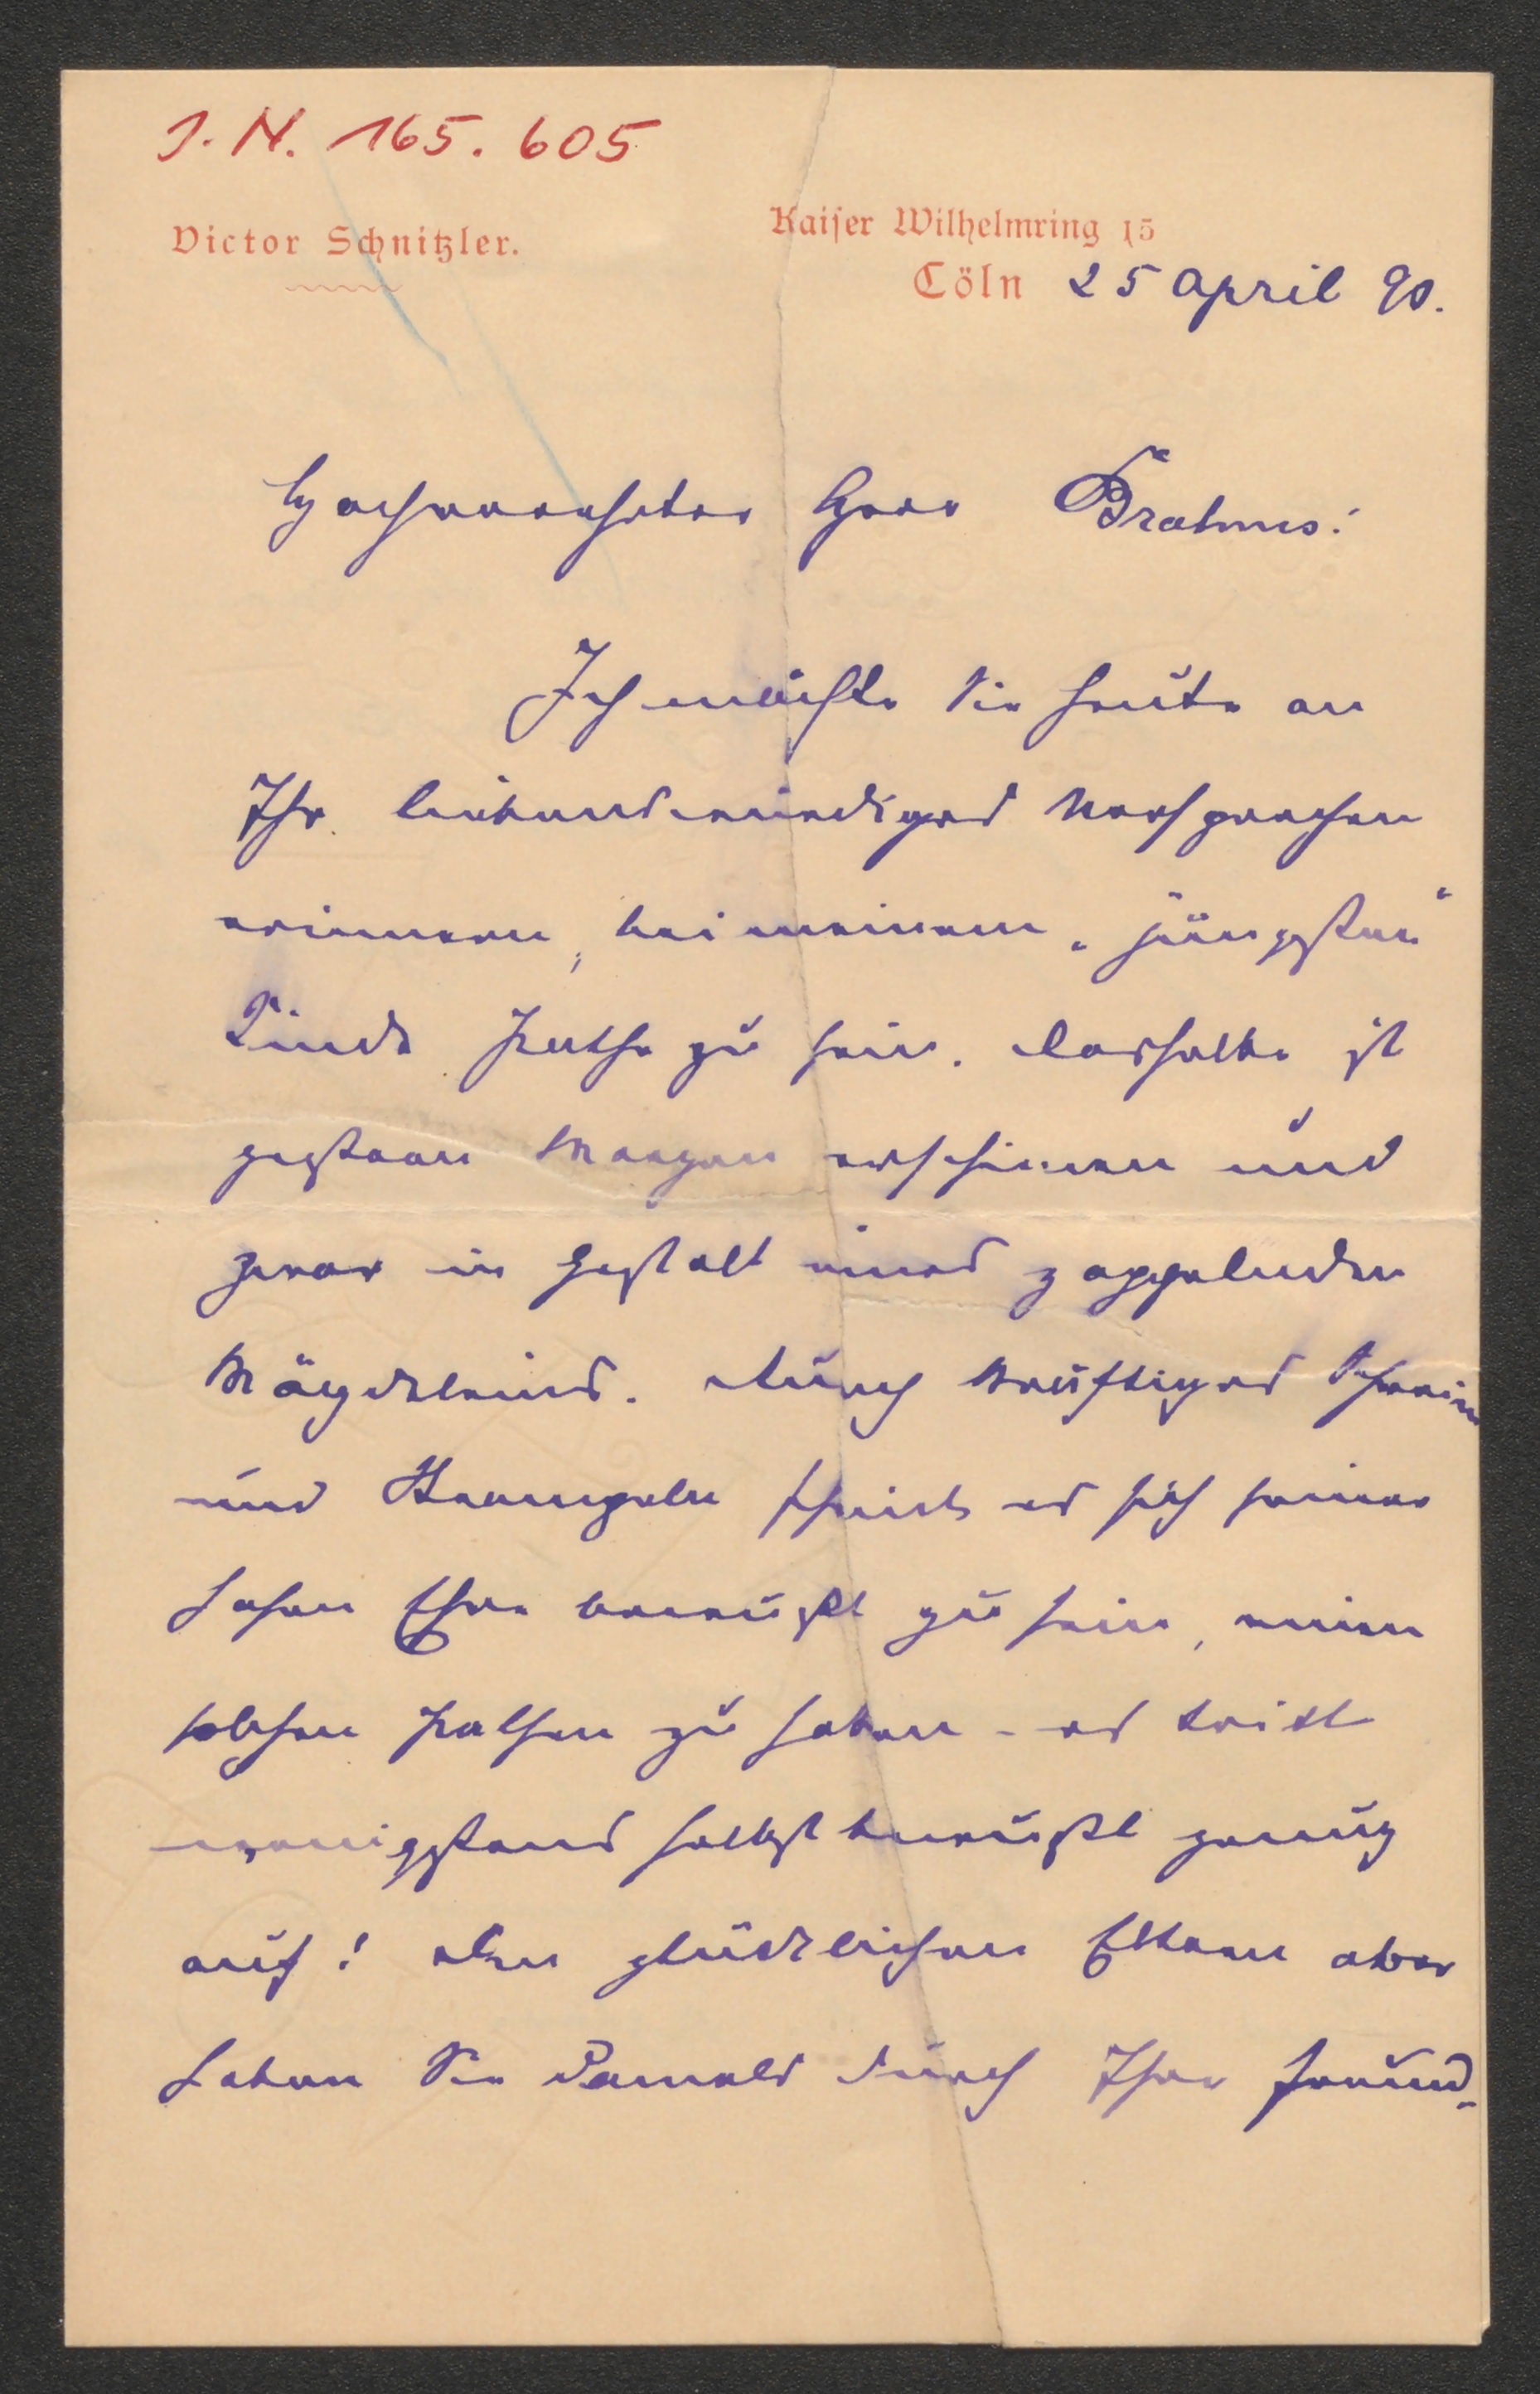 J. N. 165.605
Victor Schnitzler.
Kaiser Wilhelmring 15
Cöln 25 April 90.
Hochverehrter Herr Brahms!
Ich möchte Sie heute an
Ihr liebenswürdiges Versprechen
erinnern, bei meinem „jüngsten"
Kinde Pathe zu sein. Dasselbe ist
gestern Morgen erschienen und
zwar in Gestalt eines zappelnden
Mägdeleins. Durch kräftiges Schreien
und Strampeln scheint es sich seiner
hohen Ehre bewußt zu sein, einen
solchen Pathen zu haben - es tritt
wenigstens selbstbewußt genug
auf! Den glücklichen Eltern aber
haben Sie damals durch Ihre freund-